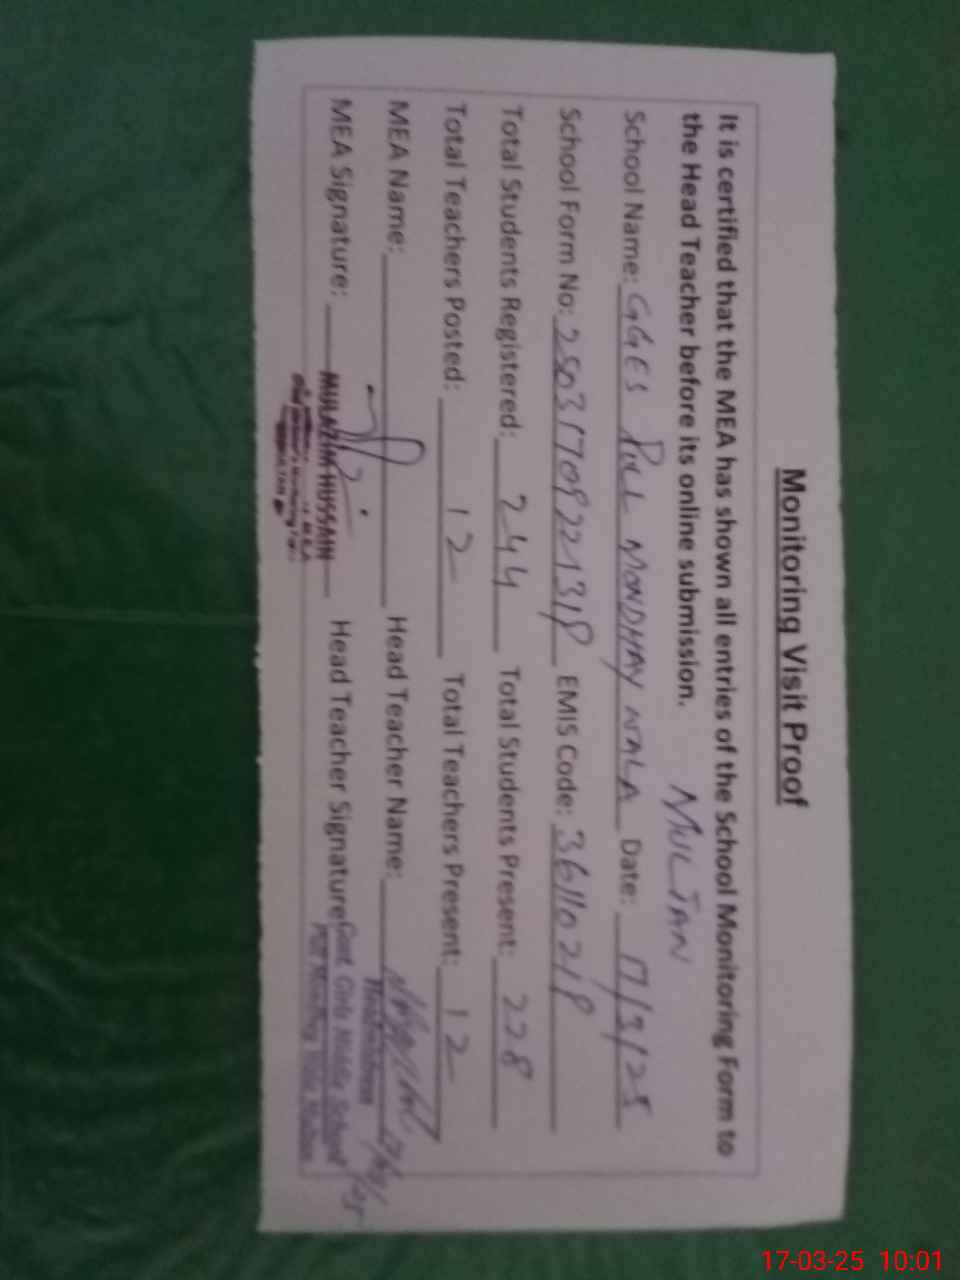 Monitoring Visit Proof
It is certified that the MEA has shown all entries of the School Monitoring Form to
the Head Teacher before its online submission. MULTAN
School Name: GGES PULL MONDHAY WALA Date: 17/3/25
School Form No: EMIS Code:
Total Students Registered: 244 Total Students Present: 228
Total Teachers Posted: 12 Total Teachers Present: 12
MEA Name: Head Teacher Name:
MEA Signature: MULAZIM HUSSAIN Head Teacher Signature
M.E.A
Headmistress
Govt. Girls Middle School
Multan
17-03-25 10:01